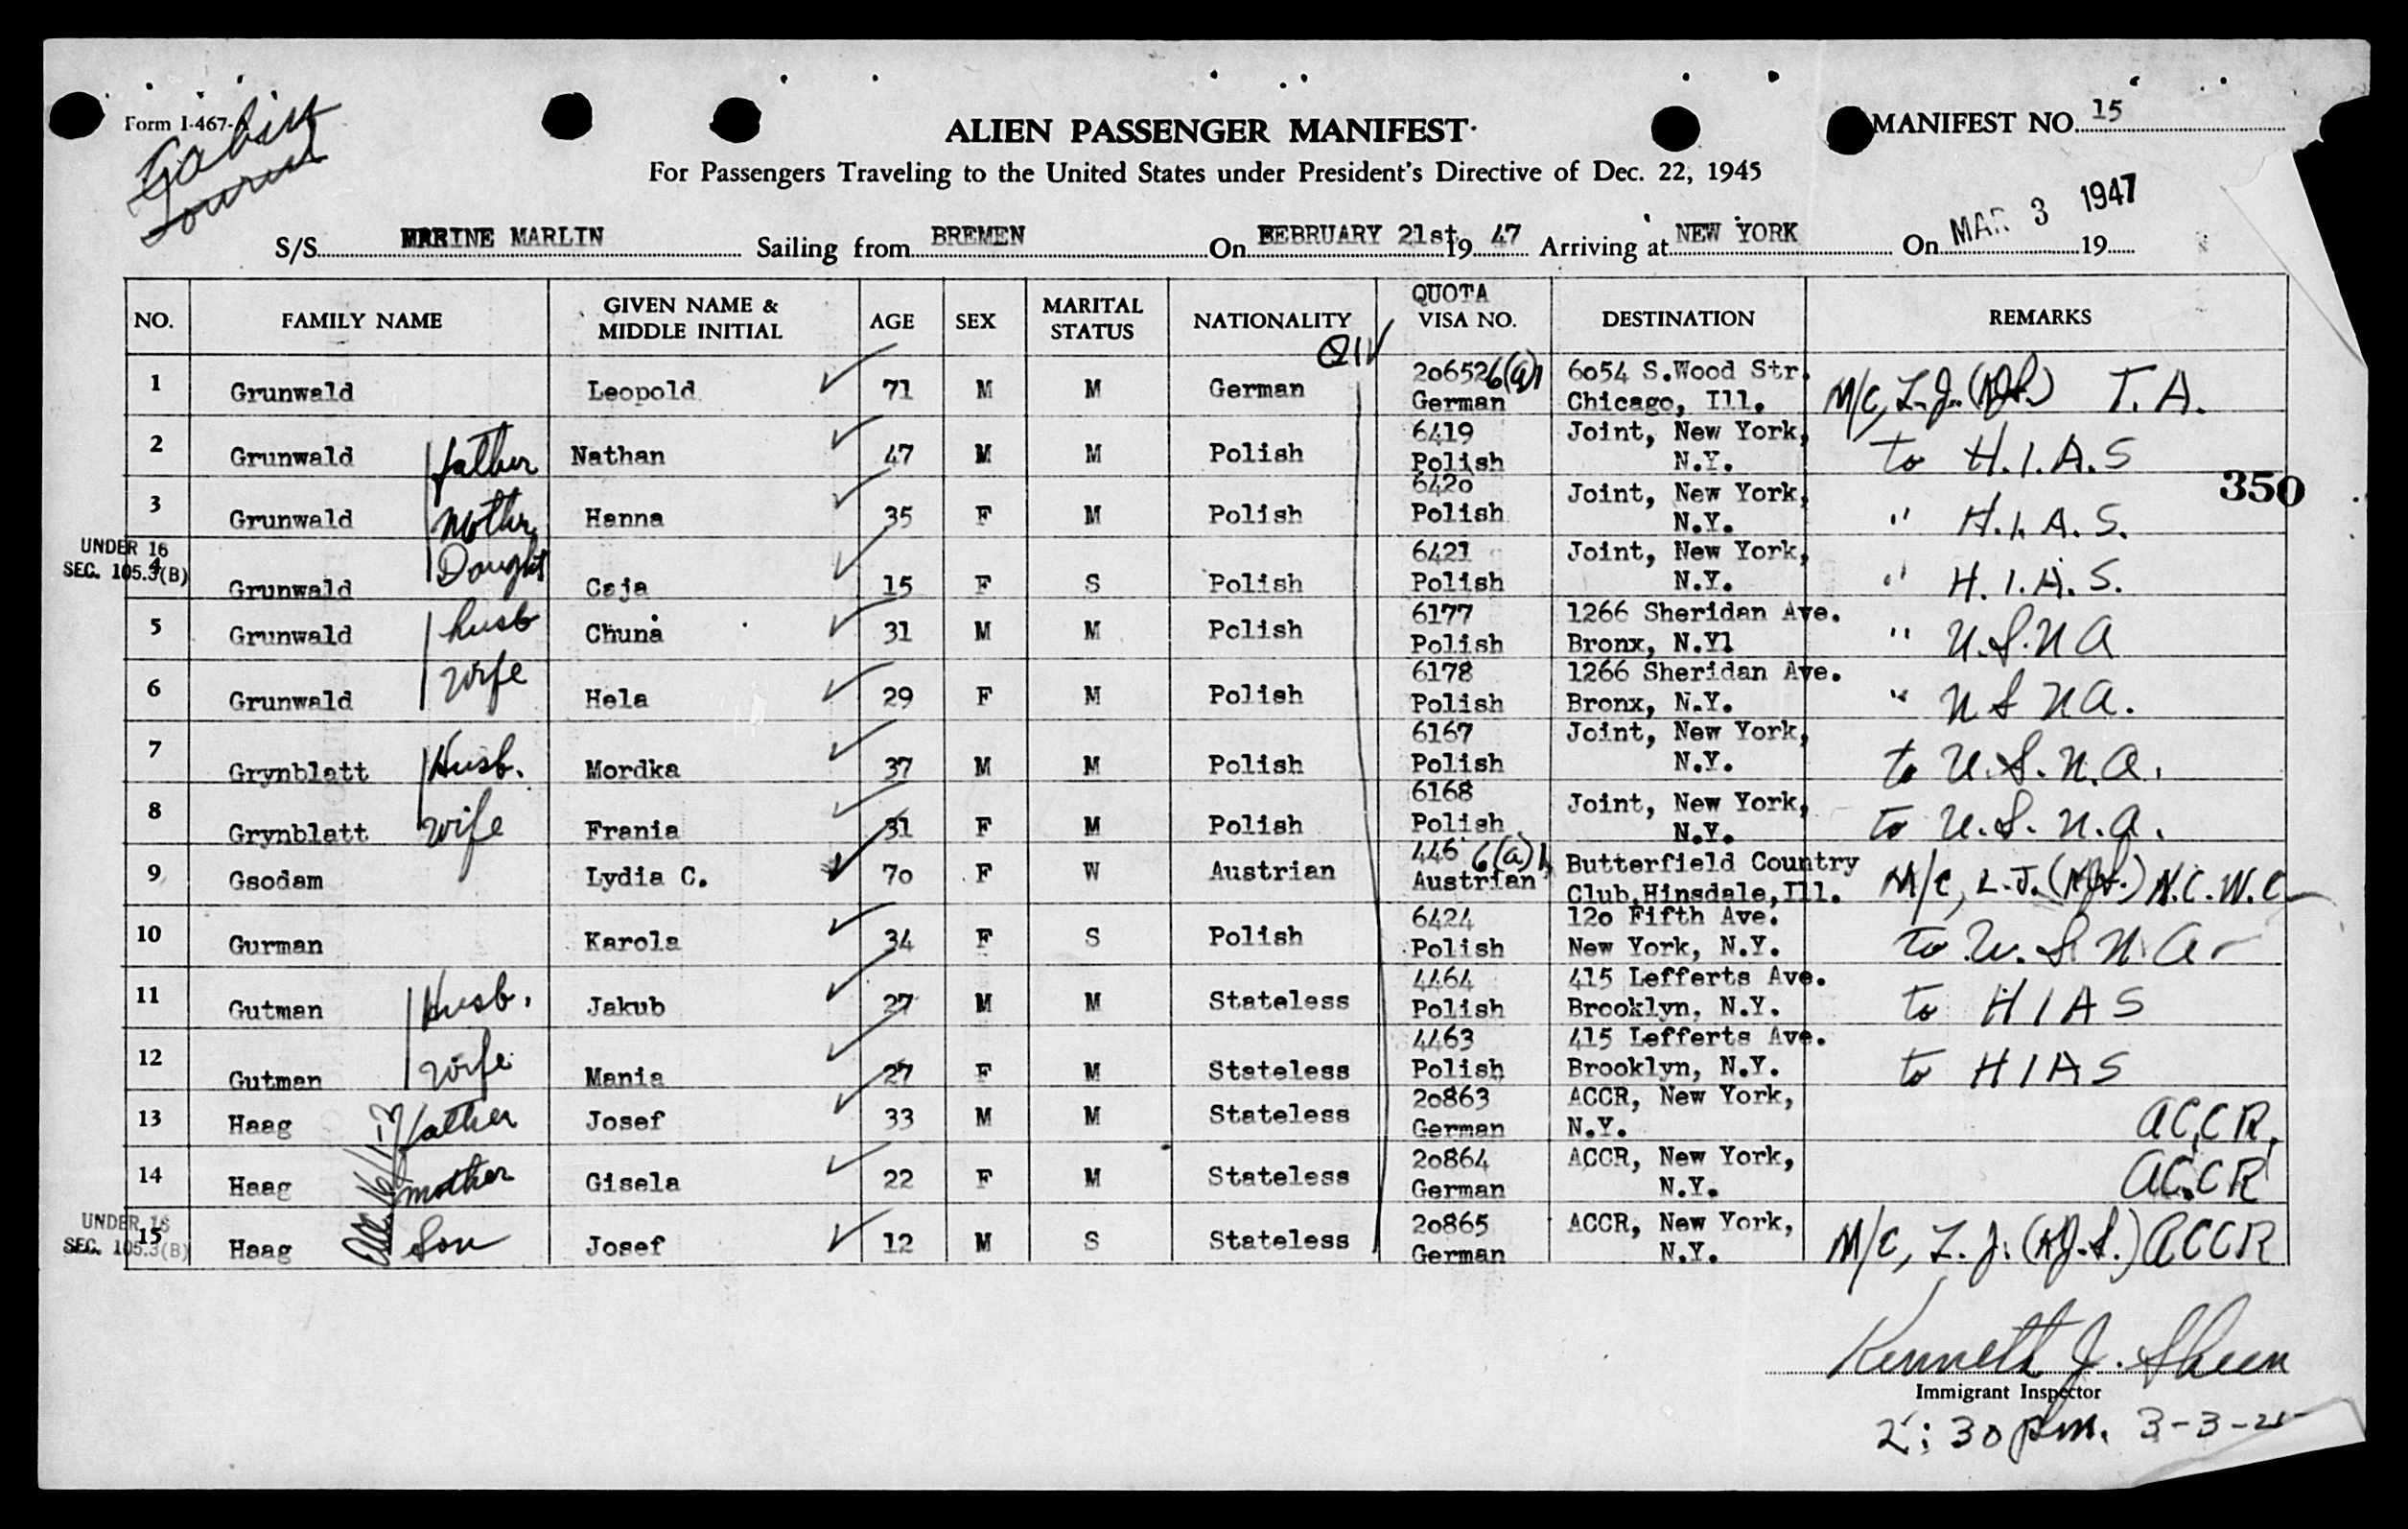 Form I-467-A
Cabin
Tourist
ALIEN PASSENGER MANIFEST
MANIFEST NO. 15
For Passengers Traveling to the United States under President's Directive of Dec. 22, 1945
S/S MARINE MARLIN Sailing from BREMEN On FEBRUARY 21st 19 47 Arriving at NEW YORK On MAR 3 1947 19
NO. FAMILY NAME GIVEN NAME & MIDDLE INITIAL AGE SEX MARITAL STATUS NATIONALITY QUOTA VISA NO. DESTINATION REMARKS
QIV
1 Grunwald Leopold 71 M M German 20652 6(a)1 German 6054 S.Wood Str. Chicago, Ill. M/C, L.J. T.A.
2 Grunwald father Nathan 47 M M Polish 6419 Polish Joint, New York, N.Y. to H.I.A.S
350
3 Grunwald Mother Hanna 35 F M Polish 6420 Polish Joint, New York, N.Y. " H.I.A.S.
UNDER 16
SEC. 105.3(B)
4 Grunwald Daught Caja 15 F S Polish 6421 Polish Joint, New York, N.Y. " H.I.A.S.
5 Grunwald husb Chuna 31 M M Polish 6177 Polish 1266 Sheridan Ave. Bronx, N.Yl " U.S.N A
6 Grunwald wife Hela 29 F M Polish 6178 Polish 1266 Sheridan Ave. Bronx, N.Y. " U S N A.
7 Grynblatt Husb. Mordka 37 M M Polish 6167 Polish Joint, New York, N.Y. to U.S.N.A.
8 Grynblatt wife Frania 31 F M Polish 6168 Polish Joint, New York, N.Y. to U.S.N.A.
9 Gsodam Lydia C. 70 F W Austrian 446 6(a)1 Austrian Butterfield Country Club,Hinsdale,Ill. M/C, L.J. N.C.W.C
10 Gurman Karola 34 F S Polish 6424 Polish 120 Fifth Ave. New York, N.Y. to U.S N A
11 Gutman Husb. Jakub 27 M M Stateless 4464 Polish 415 Lefferts Ave. Brooklyn, N.Y. to HIAS
12 Gutman wife Mania 27 F M Stateless 4463 Polish 415 Lefferts Ave. Brooklyn, N.Y. to HIAS
13 Haag Father Josef 33 M M Stateless 20863 German ACCR, New York, N.Y. ACCR,
14 Haag mother Gisela 22 F M Stateless 20864 German ACCR, New York, N.Y. ACCR
UNDER 16
SEC. 105.3(B)
15 Haag Son Josef 12 M S Stateless 20865 German ACCR, New York, N.Y. M/C, L.J. (K.J.S.) ACCR
Kenneth J. Sheen
Immigrant Inspector
2:30 pm. 3-3-4